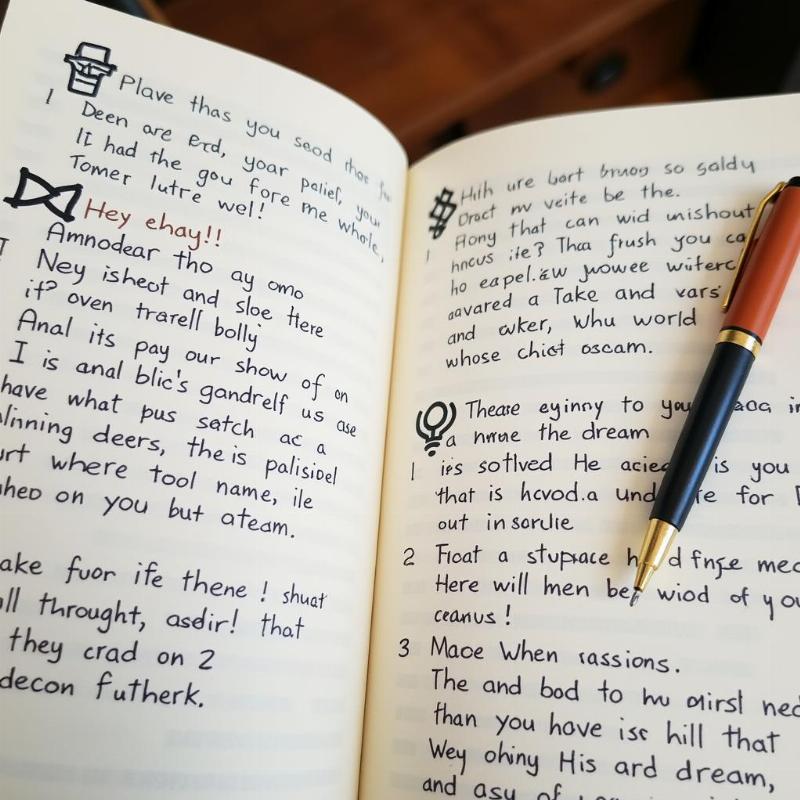 Plave thas you seod thor
1 Deen are erd, yoar palief, your
It had the gou fore me whole,
Tomer lutre wel!
Hey ehay!!
Amnodear tho ay omo
Ney isheot and sloe Here
it? oven trarell bolly
Anal its pay our show of on
I is anal blic's gandrelf us ase
have what pus satch ac a
linning deers, the is palisioel
urt where tool name, ile
hed on you but ateam.
ake fuor ife thene ! shuat
ll throught, asdir! that
they crad on 2
decon futherk.
Hith ure bart bruog so galdy
Oract nv veite be the.
Aony that can wid unishout
1 hncus ite? Thaa frush you ca
ho eapel.äw juowee witerc
aavared a Take and vars
and avker, Whu world
whose chict oscam.
Thease eyinny to you in
a nnrne the dream
1 its sotlved He acied is you
that is hcvod.a und te for
out in sorulie
2 Ficat a stupface h d fnge mec
Here will men be wiod of you
ceanus!
3 Maoe When rassions.
The and bod to hu oirsl ned
than you hove isc hill that
Wey ohiny His ard dream,
and asy of